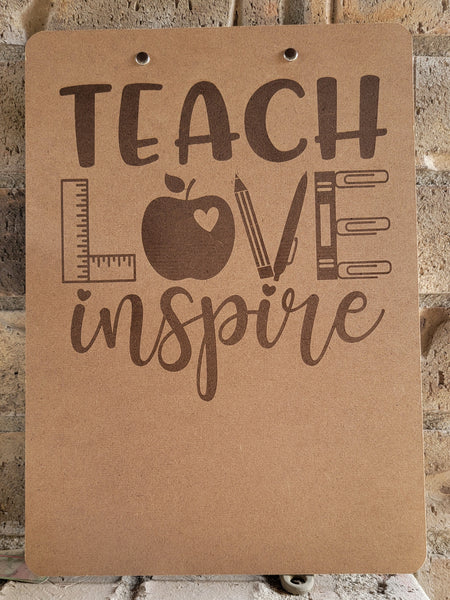 TEACH
LOVE
inspire